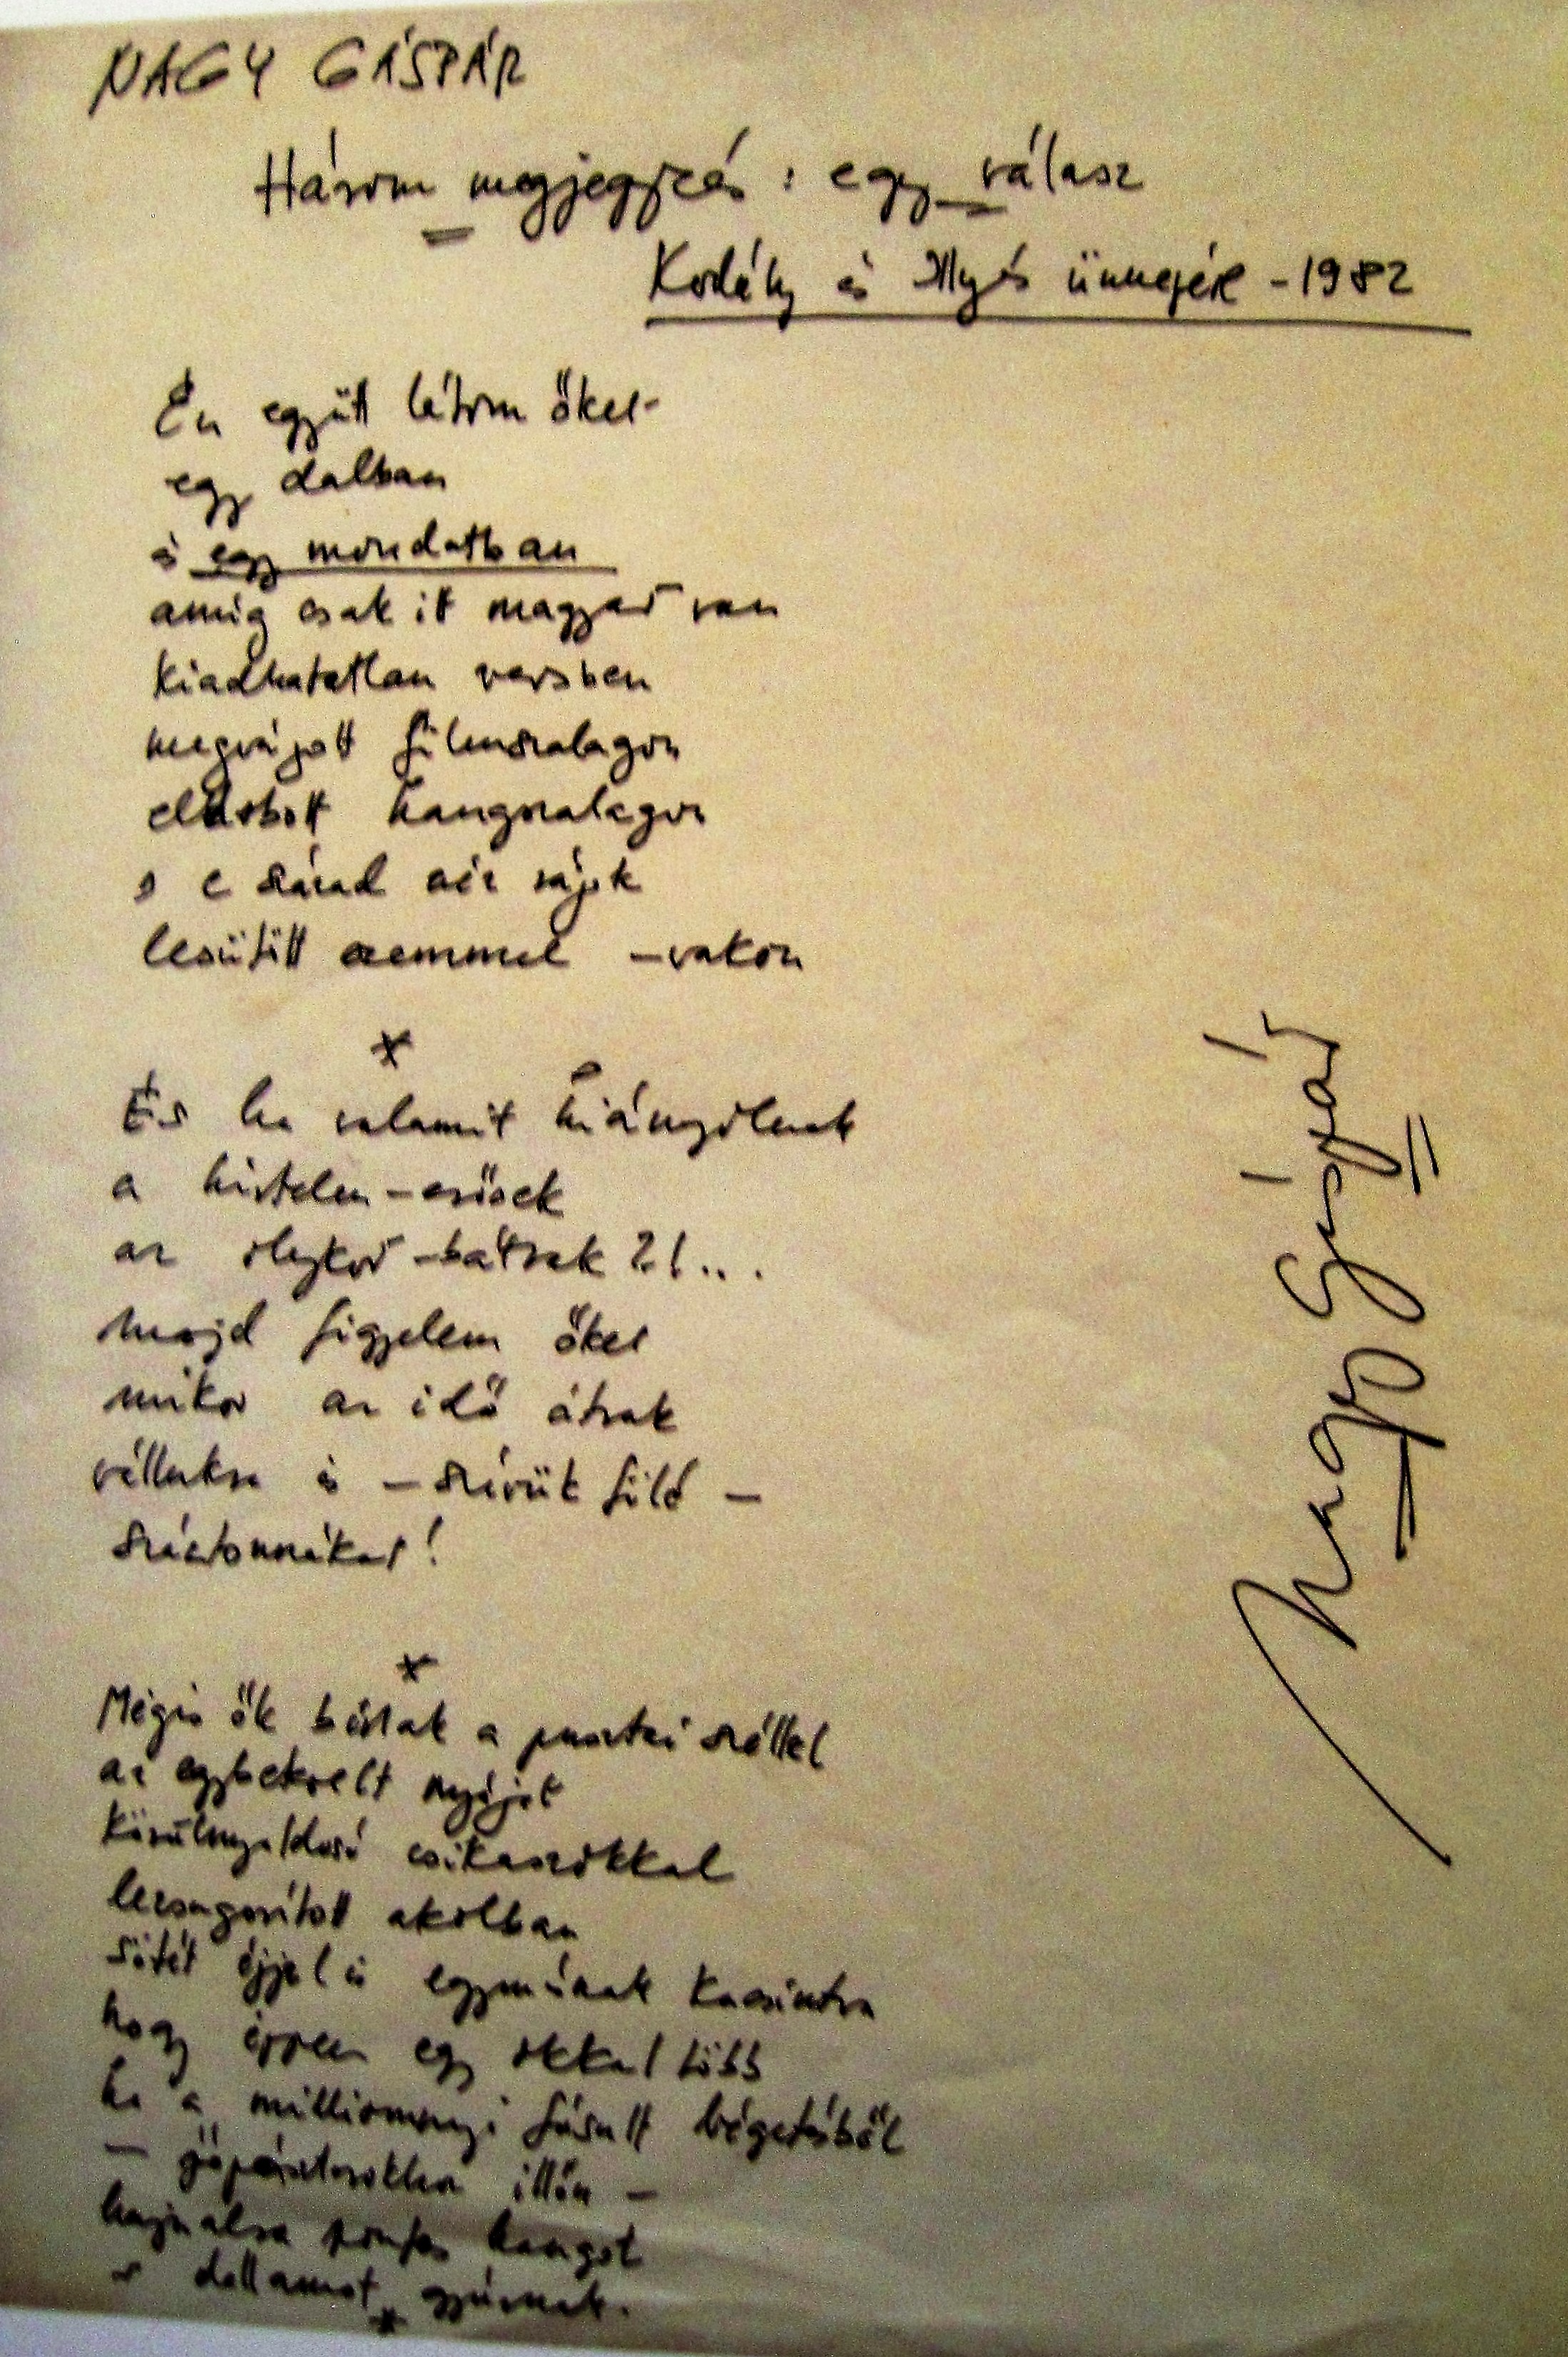 NAGY GÁSPÁR
Három megjegyzés: egy válasz
Kodály és Illyés ünnepére - 1982
Én együtt látom őket
egy dalban
és egy mondatban
amíg csak itt magyar van
kiadhatatlan versben
megvágott filmszalagon
eldobott hangszalagon
s e század néz rájuk
lesütött szemmel - vakon
x
És ha valamit hiányolnak
a hirtelen-erősek
az olykor-bátrak?!...
majd figyelem őket
mikor az idő átrak
vállukra és - szívük fölé -
száztonnákat!
x
Mégis ők bírtak a pusztai széllel
az egybeterelt nyájat
körülnyaldosó csikaszokkal
lezsugorított akolban
sötét éjjel is egymásnak kacsintva
hogy éppen egy okkal több
ha a milliomnyi fásult bégetésből
- gépészdoktorokhoz illőn -
hajnalra pontos hangot
s dallamot gyúrnak.
x
Nagy Gáspár